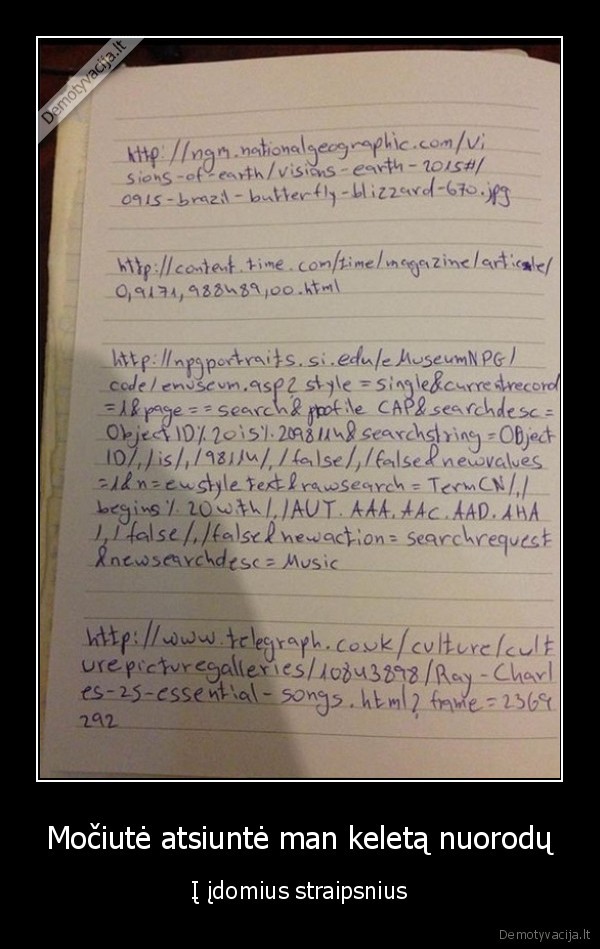 Demotyvacija.lt
http://ngm.nationalgeographic.com/vi
sions-of-earth/visions-earth-2015#/
0915-brazil-butterfly-blizzard-670.jpg
http://content.time.com/time/magazine/article/
0,9171,988489,00.html
http://npgportraits.si.edu/eMuseumNPG/
code/emuseum.asp? style=single&currentrecord
=1&page==search& profile CAP&searchdesc=
Object ID%20is%2098114&searchstring=Object
ID/,/is/,/98114/,/false/,/false&newvalues
=1&n=ewstyle text&rawsearch=TermCN/,/
begins%20with/,/AUT.AAA.AAC.AAD.AHA
/,/false/,/false&newaction=searchrequest
&newsearchdesc=Music
http://www.telegraph.co.uk/culture/cult
urepicturegalleries/10843898/Ray-Charl
es-25-essential-songs.html? frame=2369
292
Močiutė atsiuntė man keletą nuorodų
Į įdomius straipsnius
Demotyvacija.lt